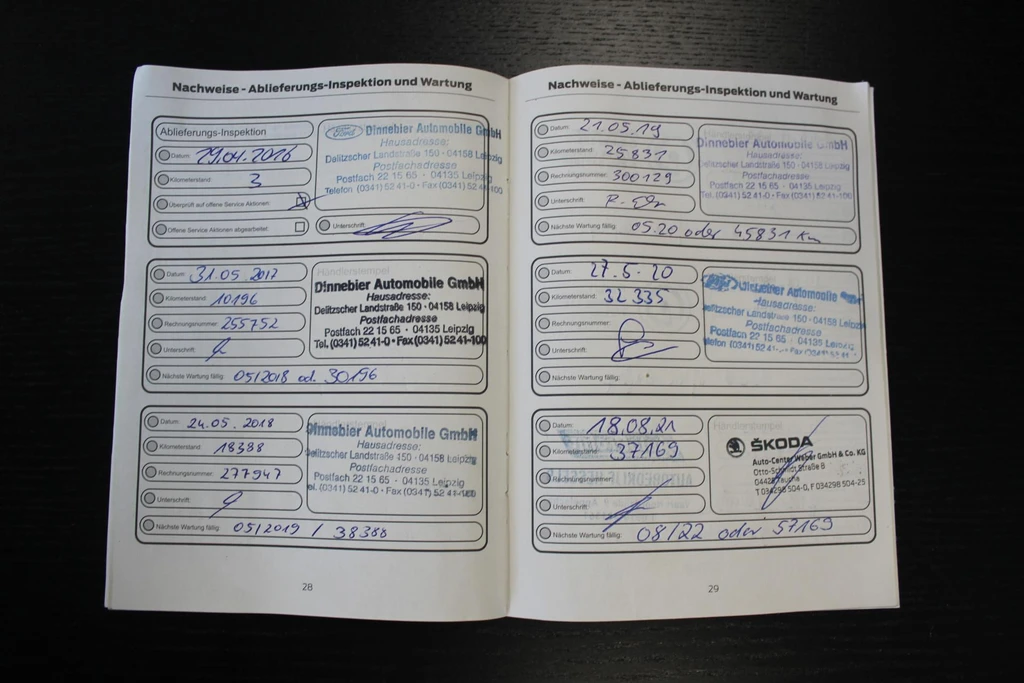 Nachweise - Ablieferungs-Inspektion und Wartung
Ablieferungs-Inspektion
Datum: 29.04.2016
Kilometerstand: 3
Überprüft auf offene Service Aktionen:
Offene Service Aktionen abgearbeitet:
Ford Dinnebier Automobile GmbH
Hausadresse:
Delitzscher Landstraße 150 · 04158 Leipzig
Postfachadresse
Postfach 22 15 65 · 04135 Leipzig
Telefon (0341) 52 41-0 · Fax (0341) 52 41-100
Unterschrift:
Datum: 31.05.2017
Kilometerstand: 10196
Rechnungsnummer: 255752
Unterschrift:
Händlerstempel
Dinnebier Automobile GmbH
Hausadresse:
Delitzscher Landstraße 150 · 04158 Leipzig
Postfachadresse
Postfach 22 15 65 · 04135 Leipzig
Tel. (0341) 52 41-0 · Fax (0341) 52 41-100
Nächste Wartung fällig: 05/2018 od. 30196
Datum: 24.05.2018
Kilometerstand: 18388
Rechnungsnummer: 277947
Unterschrift:
Dinnebier Automobile GmbH
Hausadresse:
Delitzscher Landstraße 150 · 04158 Leipzig
Postfachadresse
Postfach 22 15 65 · 04135 Leipzig
Tel. (0341) 52 41-0 · Fax (0341) 52 41-100
Nächste Wartung fällig: 05/2019 / 38388
28
Nachweise - Ablieferungs-Inspektion und Wartung
Datum: 21.05.19
Kilometerstand: 25831
Rechnungsnummer: 300129
Unterschrift:
Dinnebier Automobile GmbH
Hausadresse:
Delitzscher Landstraße 150 · 04158 Leipzig
Postfachadresse
Postfach 22 15 65 · 04135 Leipzig
Telefon (0341) 52 41-0 · Fax (0341) 52 41-100
Nächste Wartung fällig: 05.20 oder 45831 Km
Datum: 27.5.20
Kilometerstand: 32335
Rechnungsnummer:
Unterschrift:
Dinnebier Automobile
Hausadresse:
Delitzscher Landstraße 150 · 04158 Leipzig
Postfachadresse
Postfach 22 15 65 · 04135 Leipzig
Telefon (0341) 52 41-0 · Fax (0341) 52 41-
Nächste Wartung fällig:
Datum: 18.08.21
Kilometerstand: 37169
Rechnungsnummer:
Unterschrift:
Händlerstempel
ŠKODA
Auto-Center Weber GmbH & Co. KG
Otto-Schmidt-Straße 8
04425 Taucha
T 034298 504-0, F 034298 504-25
Nächste Wartung fällig: 08/22 oder 57169
29